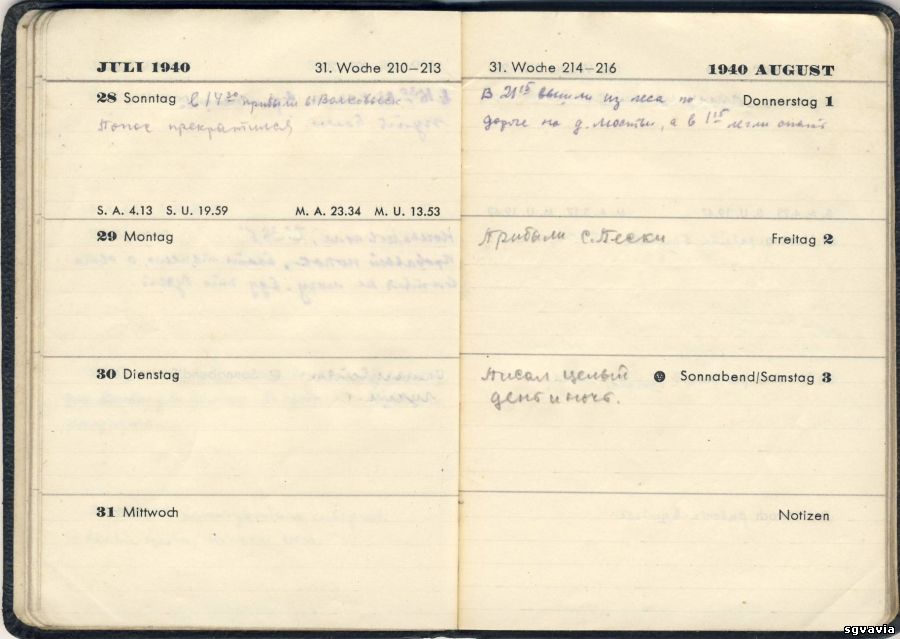 JULI 1940 31. Woche 210–213
28 Sonntag в 14³⁰ прибыли в Волковыск
Понос прекратился
S. A. 4.13 S. U. 19.59 M. A. 23.34 M. U. 13.53
29 Montag
30 Dienstag
31 Mittwoch
31. Woche 214–216 1940 AUGUST
В 21¹⁵ вышли из леса по Donnerstag 1
дороге на д. Мосты, а в 1¹⁵ легли спать
Прибыли с. Пески Freitag 2
Писал целый Sonnabend/Samstag 3
день и ночь.
Notizen
sgvavia